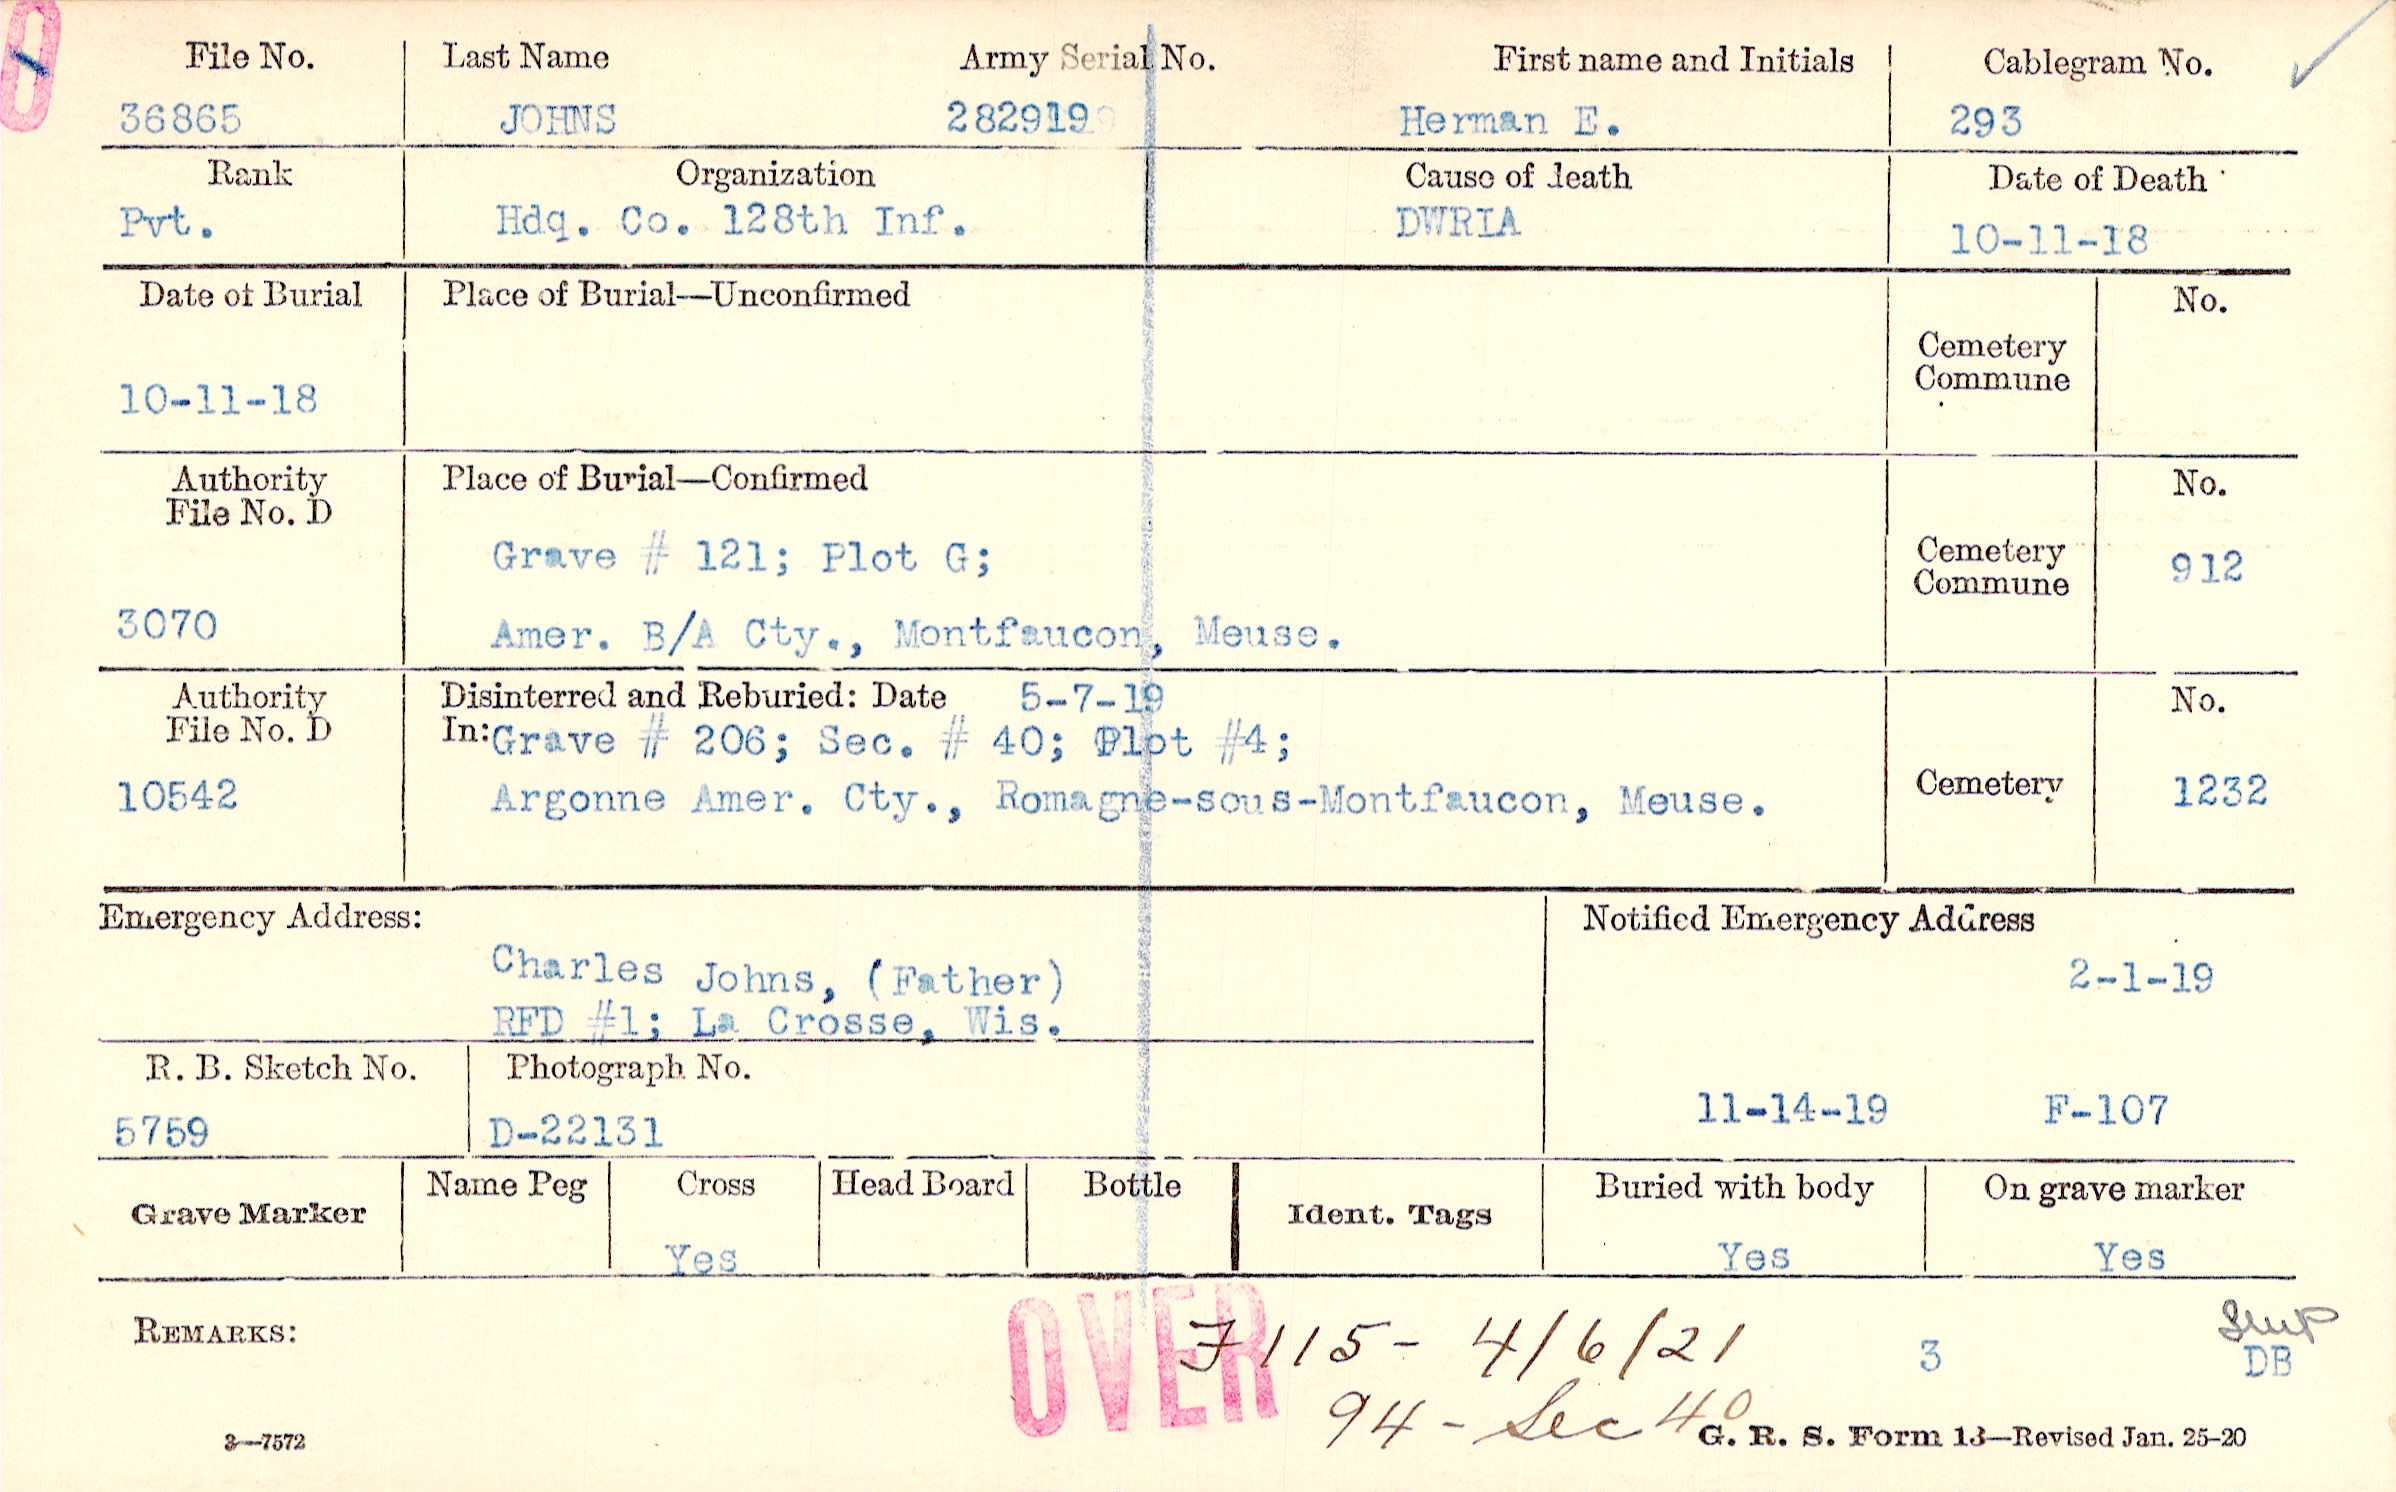 File No. Last Name Army Serial No. First name and Initials Cablegram No.
36865 JOHNS 2829199 Herman E. 293
Rank Organization Cause of death Date of Death
Pvt. Hdq. Co. 128th Inf. DWRIA 10-11-18
Date of Burial Place of Burial—Unconfirmed No.
Cemetery
Commune
10-11-18
Authority Place of Burial—Confirmed No.
File No. D
Grave # 121; Plot G; Cemetery 912
Commune
3070 Amer. B/A Cty., Montfaucon, Meuse.
Authority Disinterred and Reburied: Date 5-7-19 No.
File No. D In: Grave # 206; Sec. # 40; Plot #4;
10542 Argonne Amer. Cty., Romagne-sous-Montfaucon, Meuse. Cemetery 1232
Emergency Address: Notified Emergency Address
Charles Johns, (Father) 2-1-19
RFD #1; La Crosse, Wis.
R. B. Sketch No. Photograph No.
5759 D-22131 11-14-19 F-107
Grave Marker Name Peg Cross Head Board Bottle Ident. Tags Buried with body On grave marker
Yes Yes Yes
REMARKS: OVER F115- 4/6/21 3
DB
94 - Sec 40
3—7572 G. R. S. Form 13—Revised Jan. 25-20